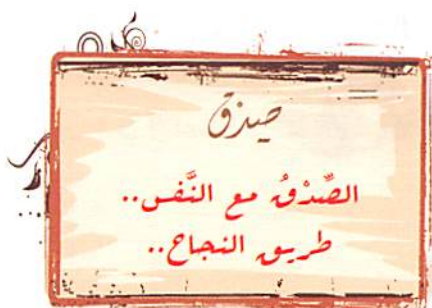 صدق
الصِّدْقُ مع النَّفس..
طريق النجاح..